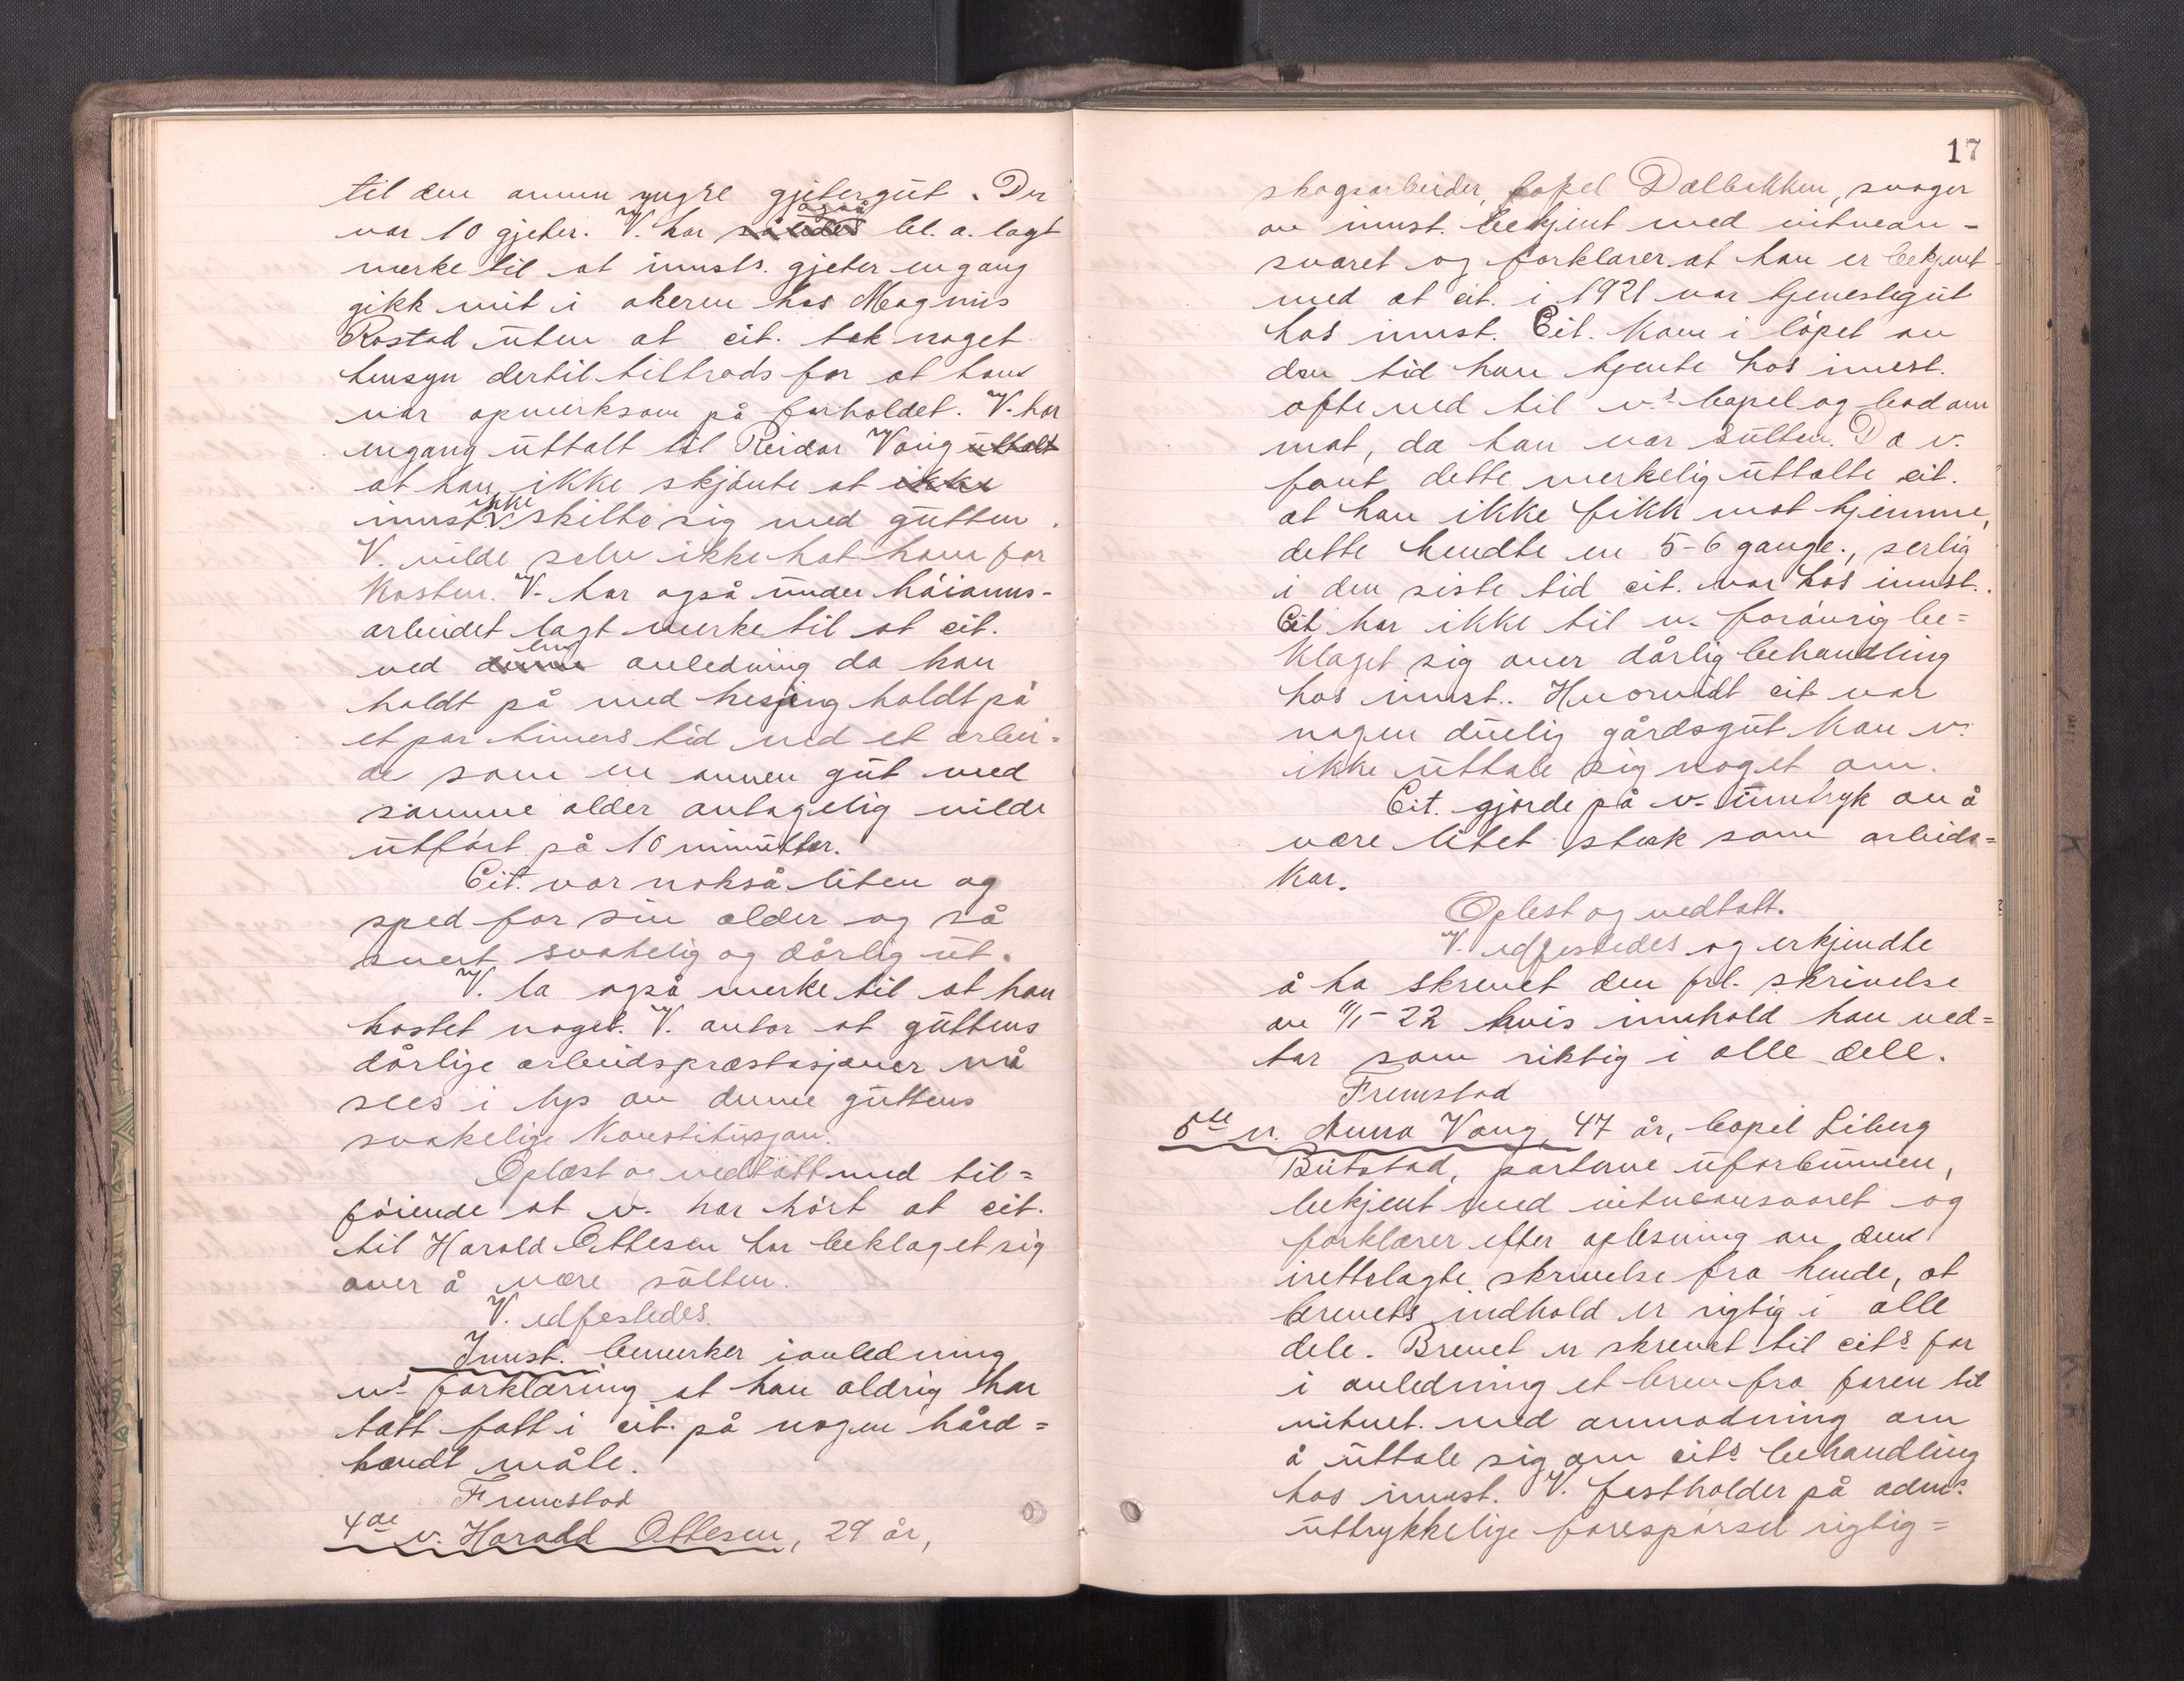 til den annen yngre gjetergut. Der
også
var 10 gjeter. V. har således bl. a. lagt
merke til at innsts. gjeter engang
gikk mit i akeren hos Magnus
Rostad uten at cit. tok noget
hensyn dertil tiltrods for at hans
var opmerksom på forholdet. V. har
engang uttalt til Reidar Vang uttalt
at han ikke skjønte at ikke
ikke
innst. skilte sig med gutten.
V. vilde selv ikke hat ham for
kosten. V. har også under höianns-
arbeidet lagt merke til at cit.
eng
ved denne anledning da han
holdt på med hesjing holdt på
et par timers tid med et arbei-
de som en annen gut med
samme alder antagelig vilde
utført på 10 minutter.
Cit. var nokså liten og
sped for sin alder og så
svert svakelig og dårlig ut.
V. la også merke til at han
hostet noget. V. antar at guttens
dårlige arbeidspræstasjoner må
sees i lys av denne guttens
svakelige konstitusjon.
Oplæst og vedtatt med til=
föiende at v. har hört at cit.
til Harald Ottesen har beklaget sig
over å være sulten.
V. edfestedes.
Innst. bemerker i anledning
vs forklaring at han aldrig har
tatt fatt i cit. på nogen hård=
hændt måte.
Fremstod
4de v. Harald Ottesen, 29 år,
17
skogsarbeider, bopel Dælbakken, svoger
av innst. bekjent med vitnean-
svaret og forklarer at han er bekjent
med at cit. i 1921 var tjenestegut
hos innst. Cit. kom i löpet av
den tid han tjente hos innst.
ofte ned til v.s bopel og bad om
mat, da han var sulten. Da v.
fant dette merkelig uttalte cit.
at han ikke fikk mat hjemme,
dette hendte en 5-6 gange., serlig
i den siste tid cit. var hos innst..
Cit har ikke til v. forövrig be=
klaget sig over dårlig behandling
hos innst.. Hvorvidt cit var
nogen duelig gårdsgut kan v.
ikke uttale sig noget om.
Cit. gjorde på v. inntryk av å
være litet sterk som arbeids=
kar.
Oplest og vedtatt.
V. edfestedes og erkjendte
å ha skrevet den frl. skrivelse
av 11/1-22 hvis innhold han ved=
tar som riktig i alle dele.
Fremstod
5te v. Anna Vang, 47 år, bopel Liberg
Butstad, parterne uforbunnen,
bekjent med vitneansvaret og
forklarer efter oplesning av den
irettelagte skrivelse fra hende, at
brevets indhold er rigtig i alle
dele. Brevet er skrevet til cits far
i anledning et brev fra faren til
vitnet. med anmodning om
å uttale sig om cits behandling
hos innst. V. fastholder på adms.
uttrykkelige forespörsel rigtig=